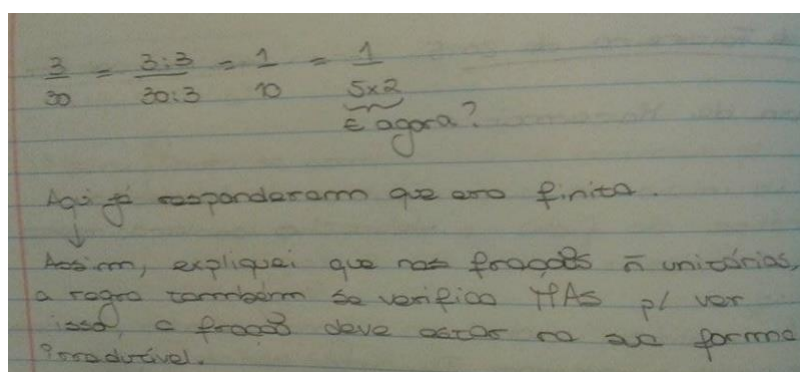 3/30 = 3:3/30:3 = 1/10 = 1/5x2
E agora?
Aqui já responderam que era finita.
↓
Assim, expliquei que nas frações ñ unitárias,
a regra também se verifica MAS p/ ver
isso, a fração deve estar na sua forma
irredutível.